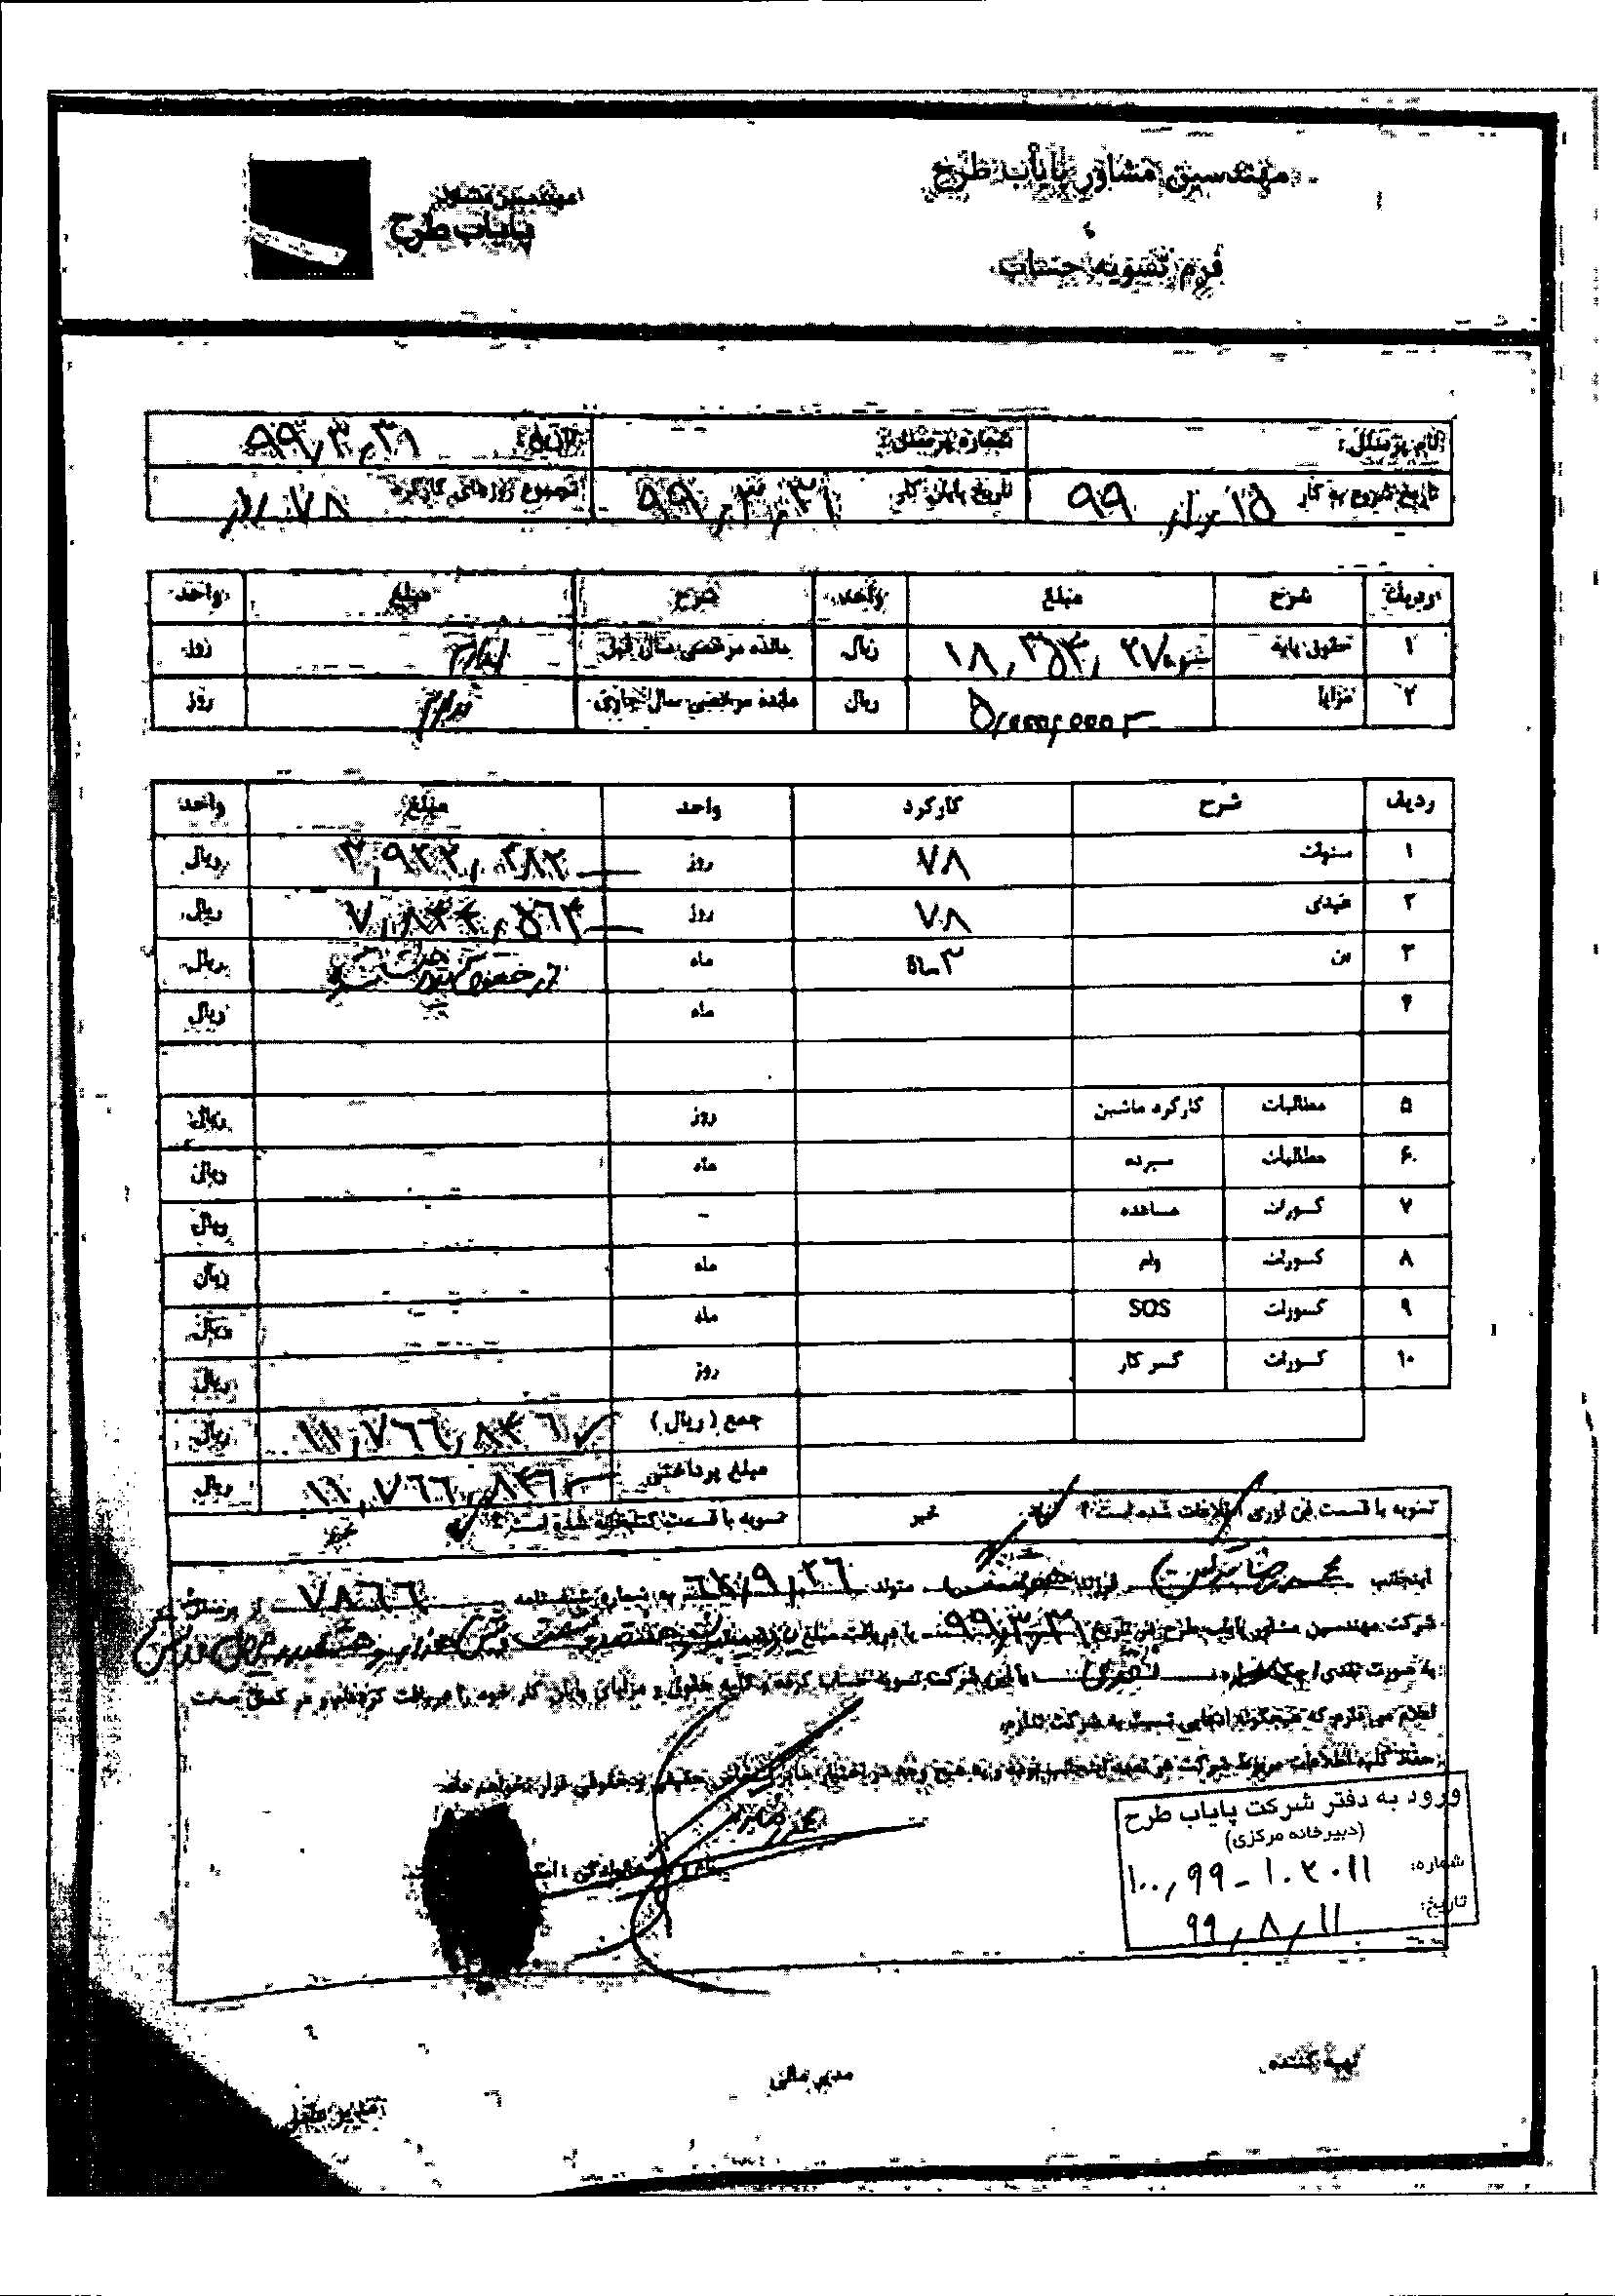 مهندسین مشاور پایاب طرح
مهندسین مشاور
پایاب طرح
فرم تسویه حساب
نام پرسنل: شماره پرسنلی: تاریخ: ۹۹,۳,۳۱
تاریخ شروع به کار ۹۹ ,۱, ۱۵ تاریخ پایان کار ۹۹,۳,۳۱ مجموع روزهای کارکرد ۷۸ روز
ردیف شرح مبلغ واحد شرح مبلغ واحد
۱ حقوق پایه ریال مانده مرخصی سال قبل ندارد روز
۲ مزایا ۵,۰۰۰,۰۰۰ ریال مانده مرخصی سال جاری ندارد روز
ردیف شرح کارکرد واحد مبلغ واحد
۱ سنوات ۷۸ روز ۳,۹۲۲,۲۸۲ ریال
۲ عیدی ۷۸ روز ۷,۸۴۴,۵۶۴ ریال
۳ بن ۳ ماه ماه ریال
۴ ماه ریال
۵ مطالبات کارکرد ماشین روز ریال
۶ مطالبات سپرده ماه ریال
۷ کسورات مساعده - ریال
۸ کسورات وام ماه ریال
۹ کسورات SOS ماه ریال
۱۰ کسورات کسر کار روز ریال
جمع (ریال) ۱۱,۷۶۶,۸۴۶ ریال
مبلغ پرداختی ۱۱,۷۶۶,۸۴۶ ریال
تسویه با قسمت فن آوری اطلاعات شده است؟ بله خیر تسویه با قسمت کتابخانه شده است؟
اینجانب محمدرضا فرزند متولد ۶۷,۹,۲۶ به شماره شناسنامه ۷۸۶۶ از پرسنل
شرکت مهندسین مشاور پایاب طرح در تاریخ ۹۹,۳,۳۱ با دریافت مبلغ
به صورت نقدی/ چک شماره با این شرکت تسویه حساب کرده و کلیه حقوق و مزایای پایان کار خود را دریافت کرده‌ام و در کمال صحت
اعلام می دارم که هیچگونه ادعایی نسبت به شرکت ندارم.
حفظ کلیه اطلاعات مربوط شرکت در تعهد اینجانب بوده و به هیچ وجه در اختیار سایر اشخاص حقیقی و حقوقی قرار نخواهم داد.
ورود به دفتر شرکت پایاب طرح
(دبیرخانه مرکزی)
شماره: ۱۰۰,۹۹-۱۰۲۰۱۱
تاریخ: ۹۹,۸,۱۱
تهیه کننده مدیر مالی مدیر عامل